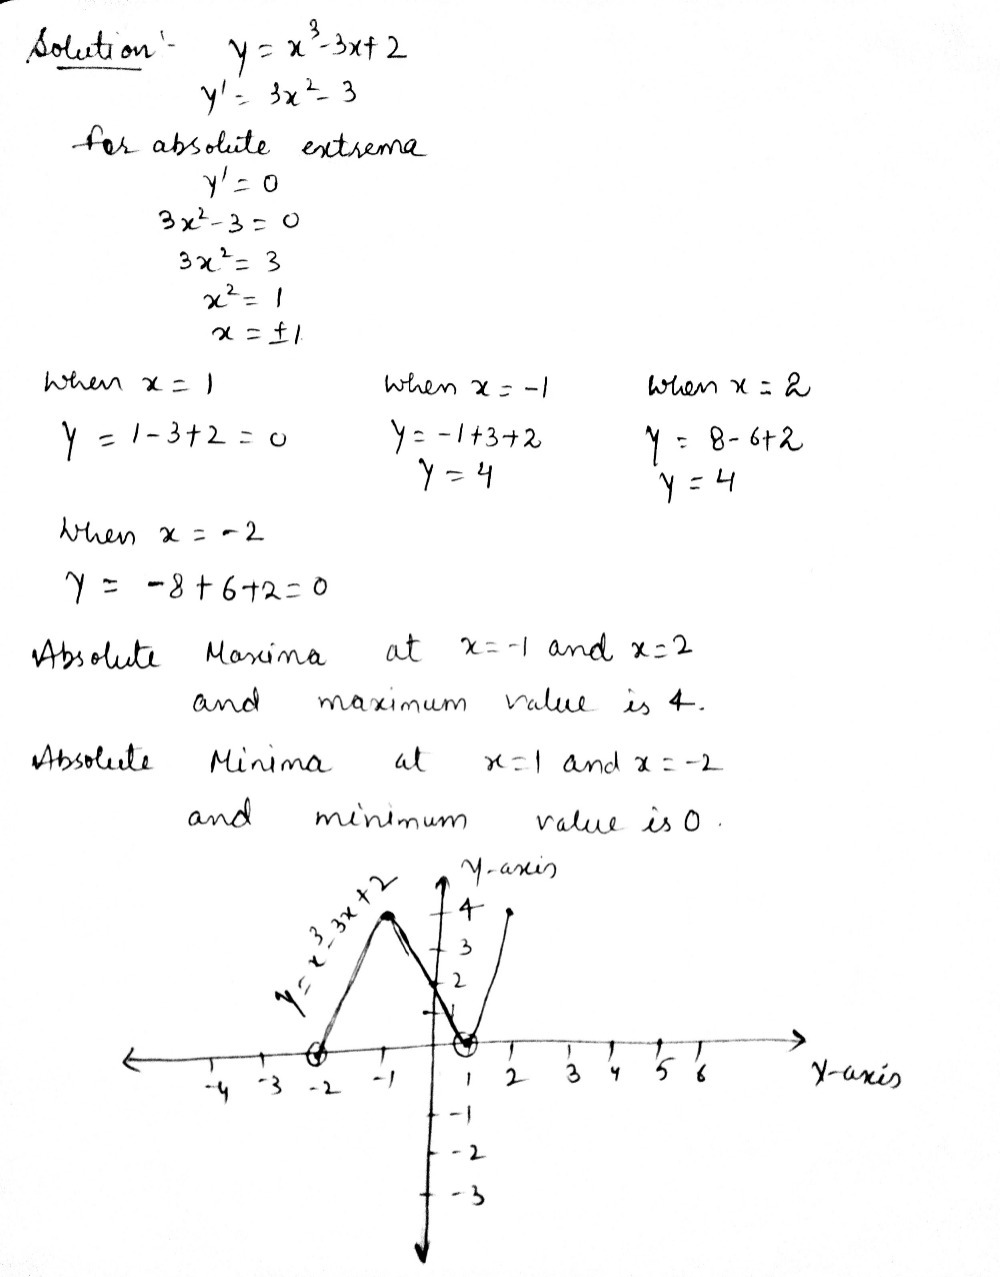 Solution:- y = x³-3x+2
y' = 3x²-3
for absolute extrema
y' = 0
3x²-3 = 0
3x² = 3
x² = 1
x = ±1
When x = 1 When x = -1 When x = 2
y = 1-3+2 = 0 y = -1+3+2 y = 8-6+2
y = 4 y = 4
When x = -2
y = -8+6+2=0
Absolute Maxima at x=-1 and x=2
and maximum value is 4.
Absolute Minima at x=1 and x=-2
and minimum value is 0.
y-axis
y = x³-3x+2
4
3
2
1
-4 -3 -2 -1 1 2 3 4 5 6 Y-axis
-1
-2
-3